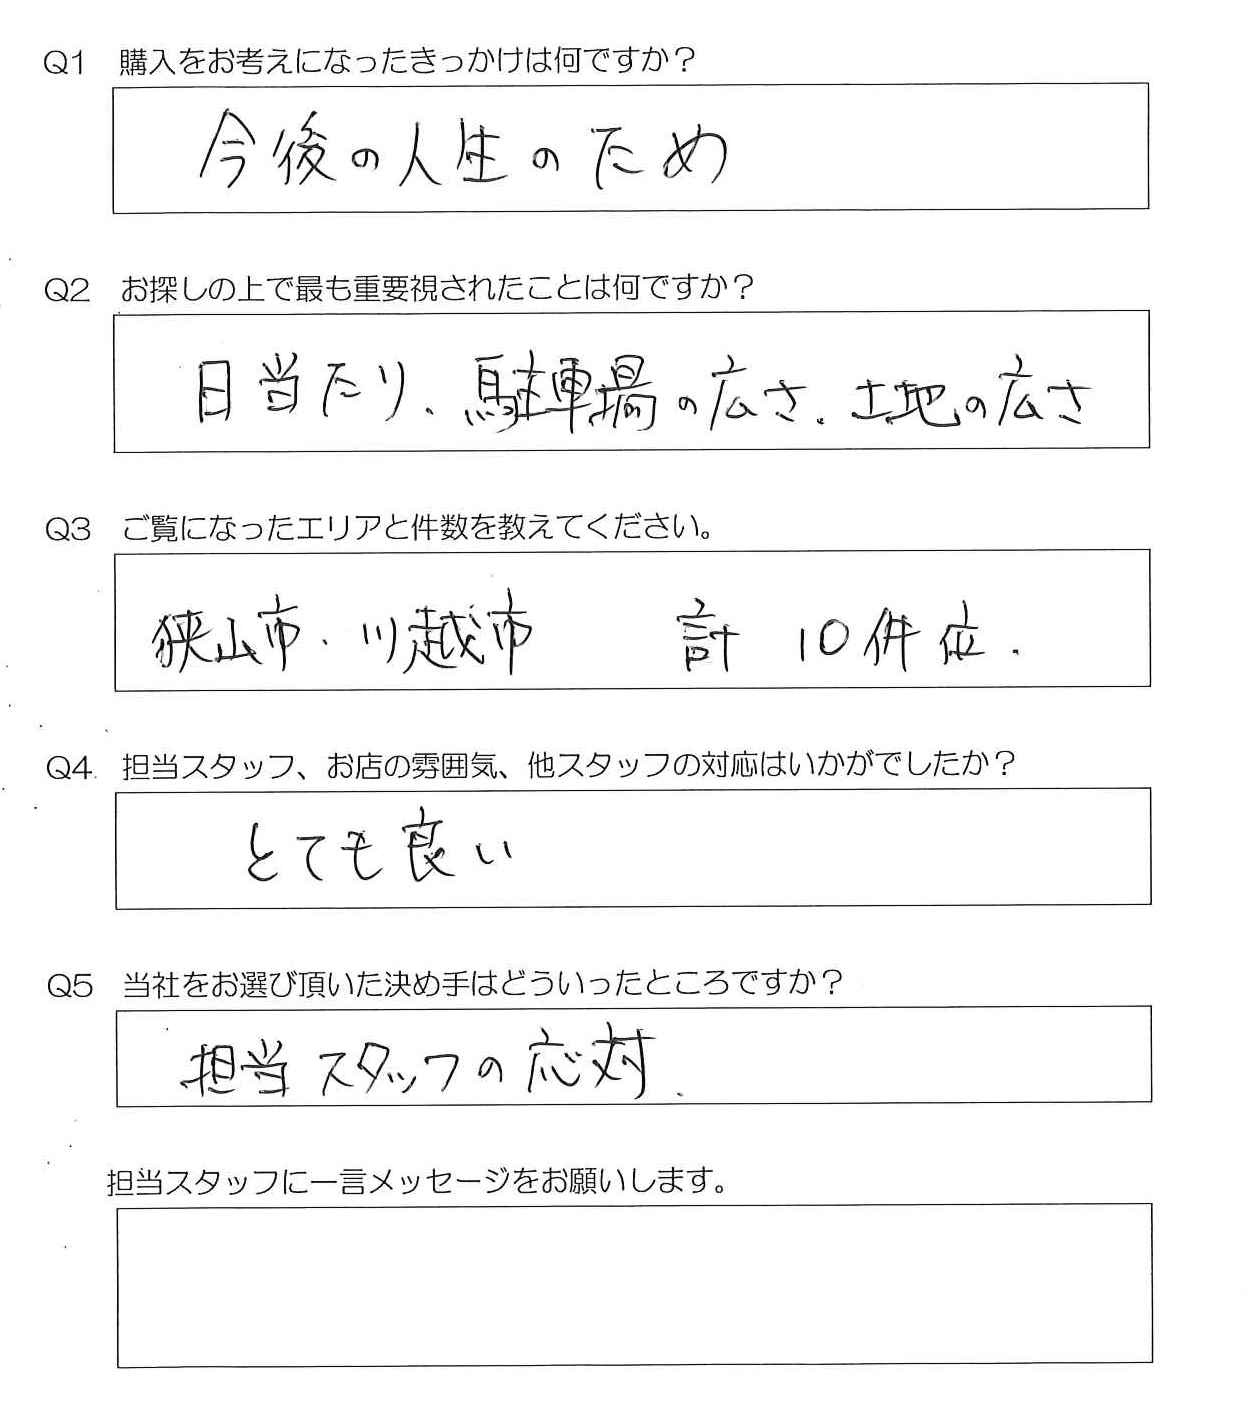 Q1 購入をお考えになったきっかけは何ですか？
今後の人生のため
Q2 お探しの上で最も重要視されたことは何ですか？
日当たり、駐車場の広さ、土地の広さ
Q3 ご覧になったエリアと件数を教えてください。
狭山市・川越市 計 10件位.
Q4. 担当スタッフ、お店の雰囲気、他スタッフの対応はいかがでしたか？
とても良い
Q5 当社をお選び頂いた決め手はどういったところですか？
担当スタッフの応対.
担当スタッフに一言メッセージをお願いします。